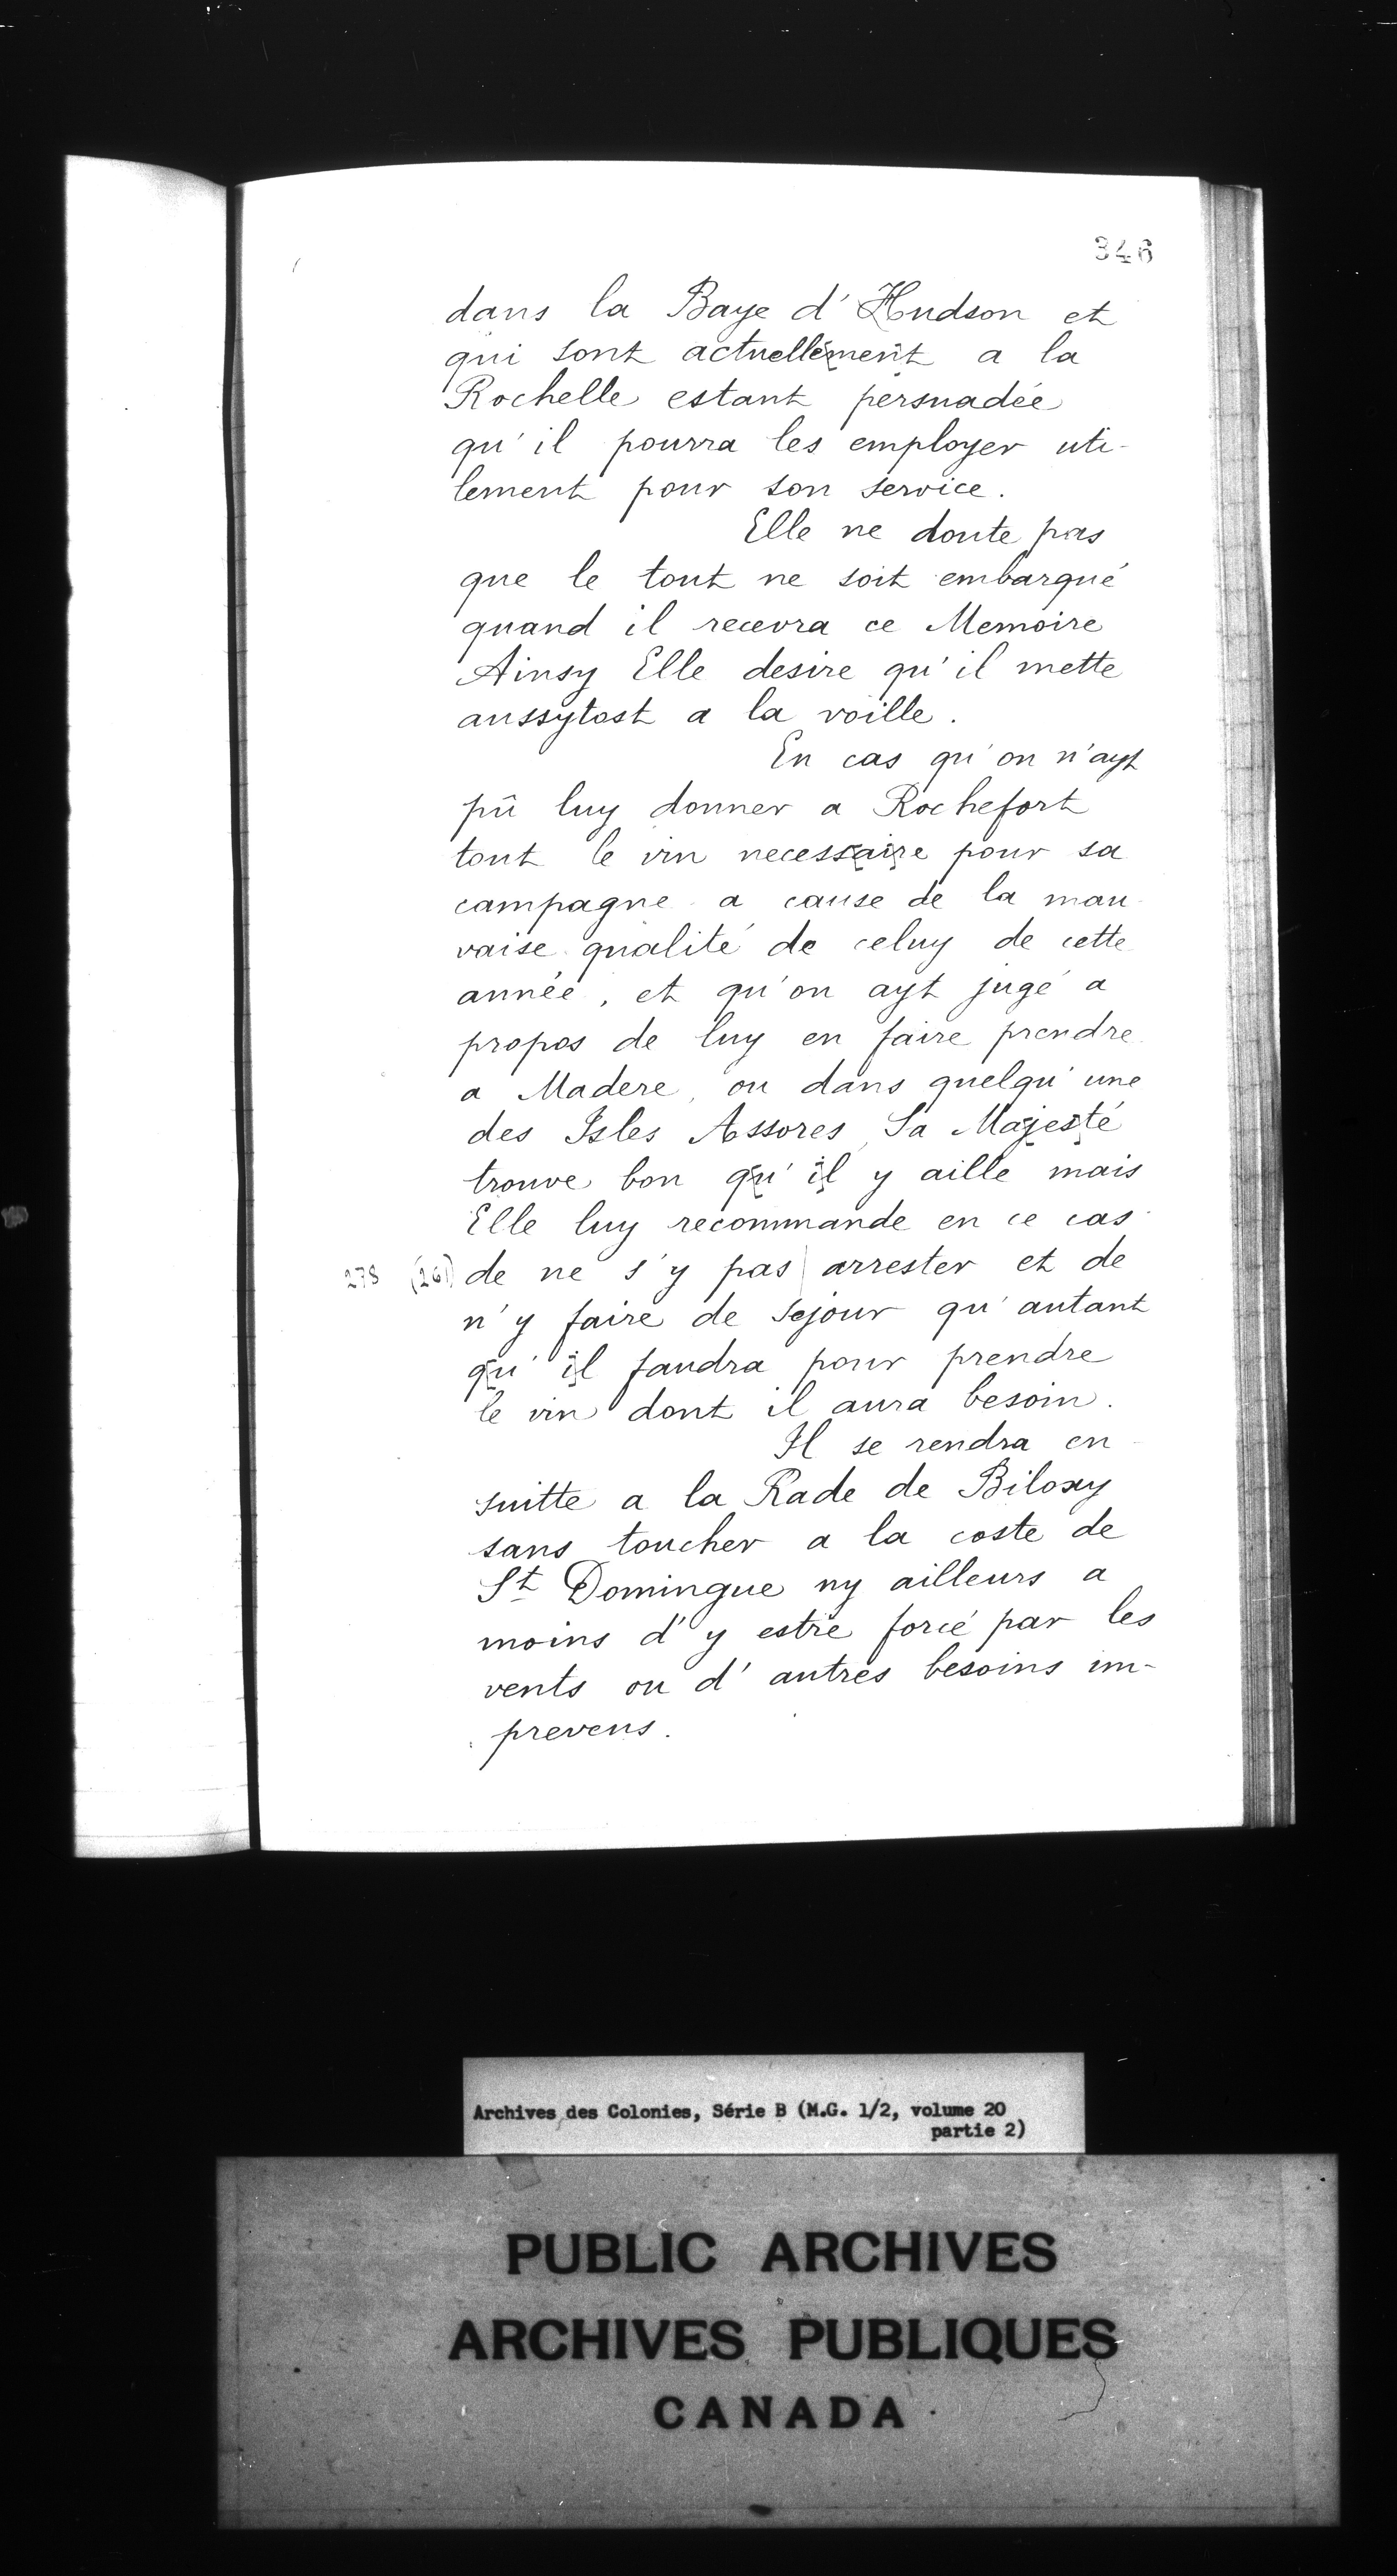 346
dans la Baye d'Hudson et
qui sont actuellement a la
Rochelle estant persuadée
qu'il pourra les employer uti-
lement pour son service.
Elle ne doute pas
que le tout ne soit embarqué
quand il recevra ce Memoire
Ainsy Elle desire qu'il mette
aussytost a la voille.
En cas qu'on n'ayt
pû luy donner a Rochefort
tout le vin necessaire pour sa
campagne a cause de la mau-
vaise qualité de celuy de cette
année, et qu'on ayt jugé a
propos de luy en faire prendre
a Madere, ou dans quelqu'une
des Isles Assores, Sa Majesté
trouve bon qu'il y aille mais
Elle luy recommande en ce cas
278 (261) de ne s'y pas | arrester et de
n'y faire de sejour qu'autant
qu'il faudra pour prendre
le vin dont il aura besoin.
Il se rendra en-
suitte a la Rade de Biloxy
sans toucher a la coste de
St Domingue ny ailleurs a
moins d'y estre forcé par les
vents ou d'autres besoins im-
preveus.
Archives des Colonies, Série B (M.G. 1/2, volume 20
partie 2)
PUBLIC ARCHIVES
ARCHIVES PUBLIQUES
CANADA